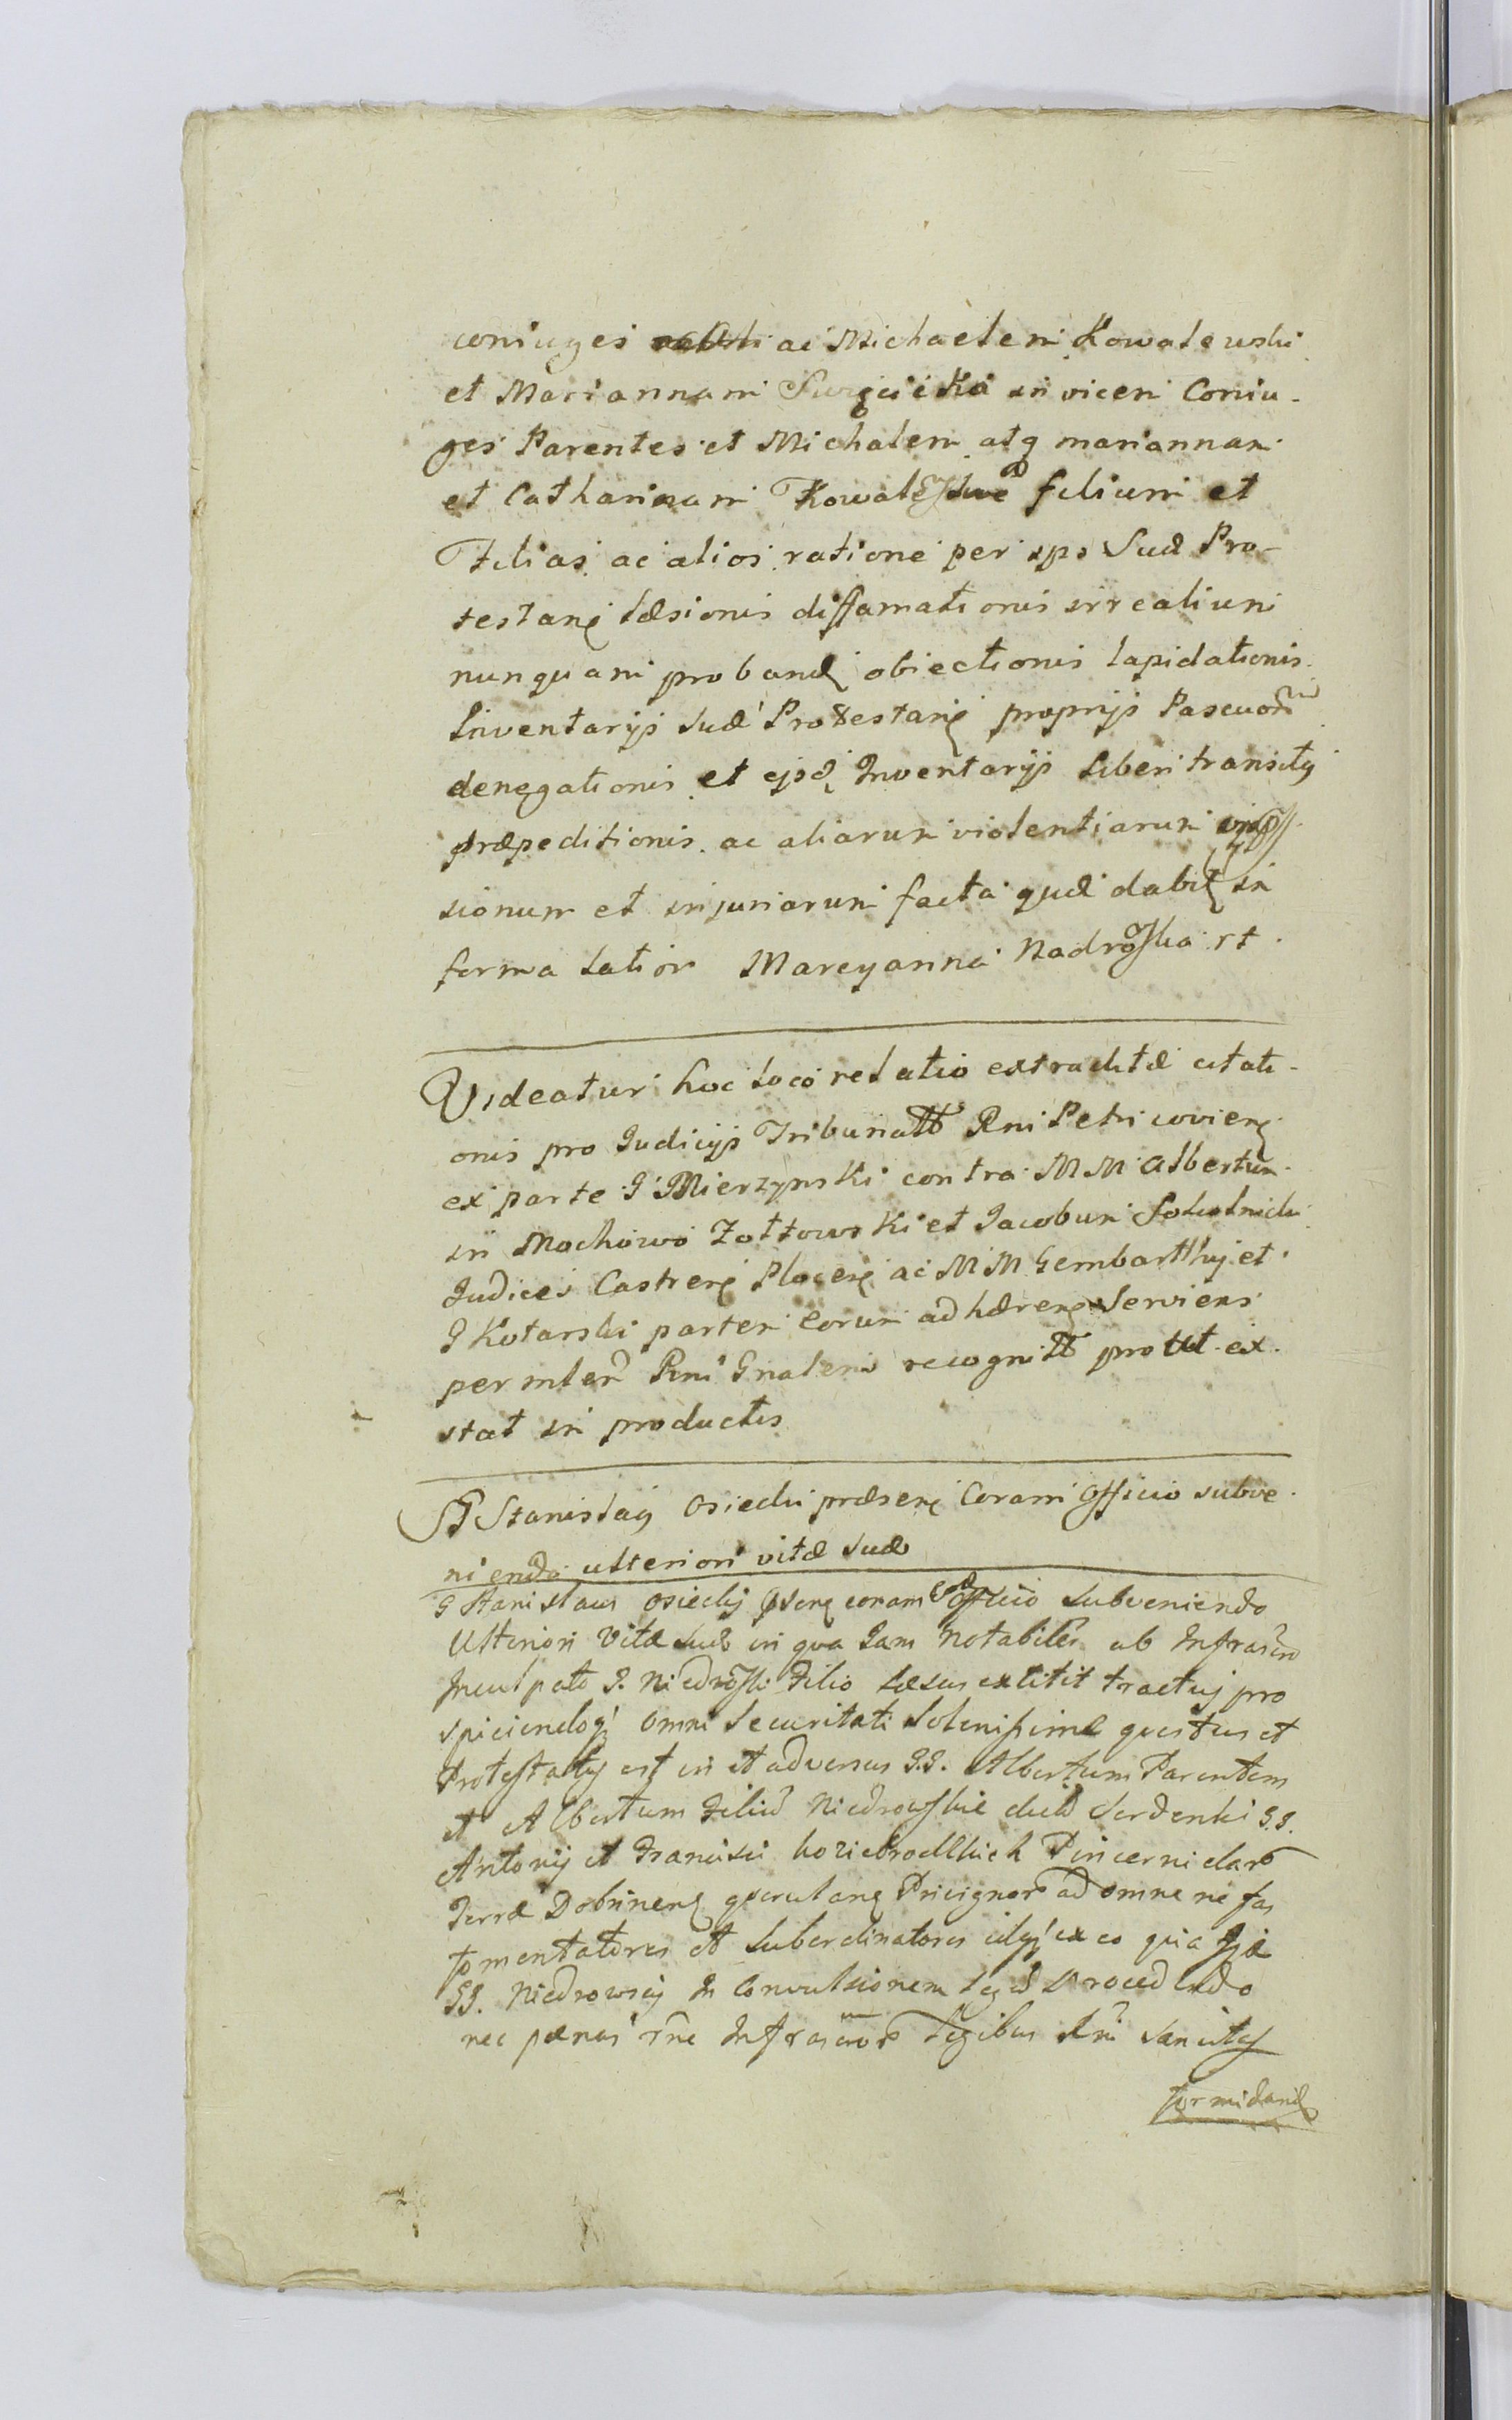 coniuges ac Michaelem Kowalewski
et Mariannam in vicem Coniu-
ges Parentes et Michalem atq mariannam
et Catharinam filium et
Filias ac alios ratione per ipso Suæ Pro-
testanꝭ læsionis diffamationis irrealium
nunquam proband obiectionis lapidationis
Inventarijs suæ Protestanꝭ proprijs Pascuor
denegationis et ejsd Inventarijs liberi transitꝯ
præpeditionis ac aliarum violentiarum
sionum et injuriarum facta quæ dabit in
forma latior Maryanna Nadroska rt.
Videatur hoc loco relatio extraditæ citati-
onis pro Judicijs Tribunatt Rni Petricovienꝭ
ex parte G Mierzynski contra MM Albertum
in Mochowo Zottowski et Jacobum
Judices Castrenꝭ Plocenꝭ ac MM Gembarthy et
G Kotarski partem eorum adhærenꝭ Serviens
per mlem Rni Gnalem recognitt prout ex-
stat in productis
G Stanislaꝯ Osiecki præsenꝭ Coram officio subve-
niendo ulteriori vitæ suæ
G Stanislaus Osiecky pser̃ꝭ coram officio Subveniendo
Ulteriori Vitæ suæ in qua Jam notabiler ab Infrascro
Inculpato G. Filio Læsus extitit tractuj pro
spiciendoq omni Securitati Solenissime questus et
Protestatꝯ est in et adversus GG. Albertum Parentem
et Albertum Filiũ Niedrowskie
Antonij et Francisci Pincernidar
Terræ Dobrinenꝭ querulanꝭ Privignor ad omne ne fas
fomentatores et Subordinatores eo quia
GG. Niedrowscy In Convulsionem legũ Procedendo
nec pænas rñe Infrascrõr Legibus Rni Sancitas
formidand